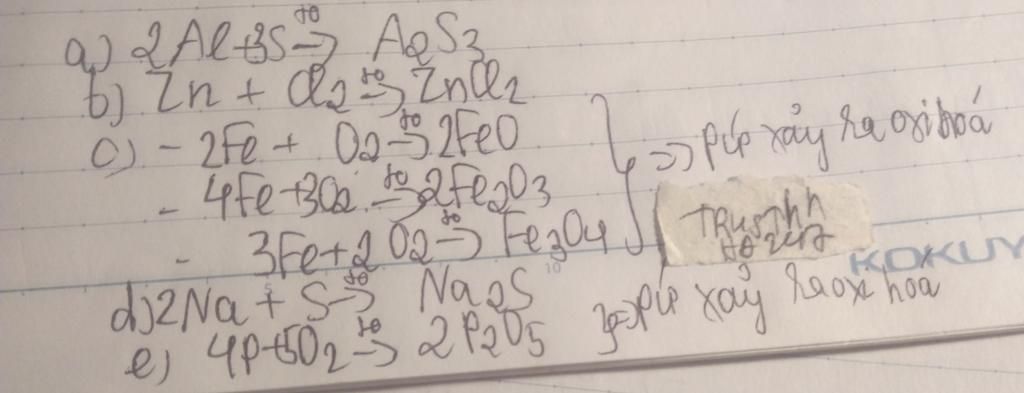 a) 2Al+3S t0→ Al2S3
b) Zn + Cl2 t0→ ZnCl2
c) - 2Fe + O2 t0→ 2FeO
- 4Fe+3O2 t0→ 2Fe2O3
- 3Fe+2O2 t0→ Fe3O4
=> pứ xảy ra oxi hoá
KOKUY
10
d) 2Na + S t0→ Na2S
e) 4P+5O2 t0→ 2P2O5 => pứ xảy ra oxi hóa